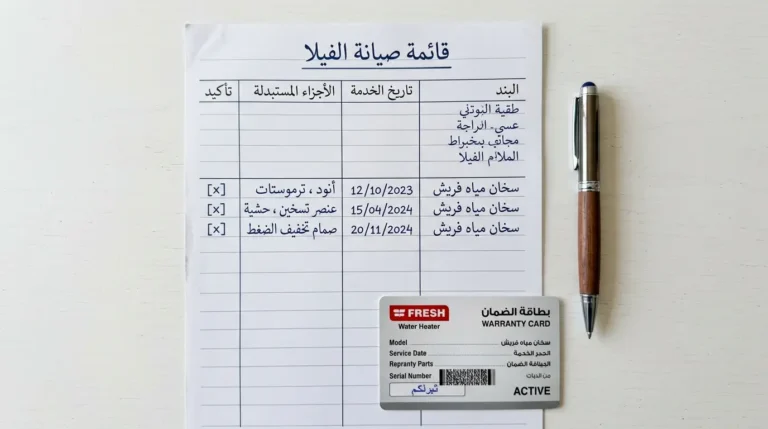 قائمة صيانة الفيلا
البند تاريخ الخدمة الأجزاء المستبدلة تأكيد
طقية
الفيلا
سخان مياه فريش 12/10/2023 أنود ، ترموستات [x]
سخان مياه فريش 15/04/2024 عنصر تسخين ، حشية [x]
سخان مياه فريش 20/11/2024 صمام تخفيف الضغط [x]
FRESH بطاقة الضمان
Water Heater WARRANTY CARD
Model سخان مياه فريش
Service Date
Repranty Parts الضمان
Serial Number
ACTIVE